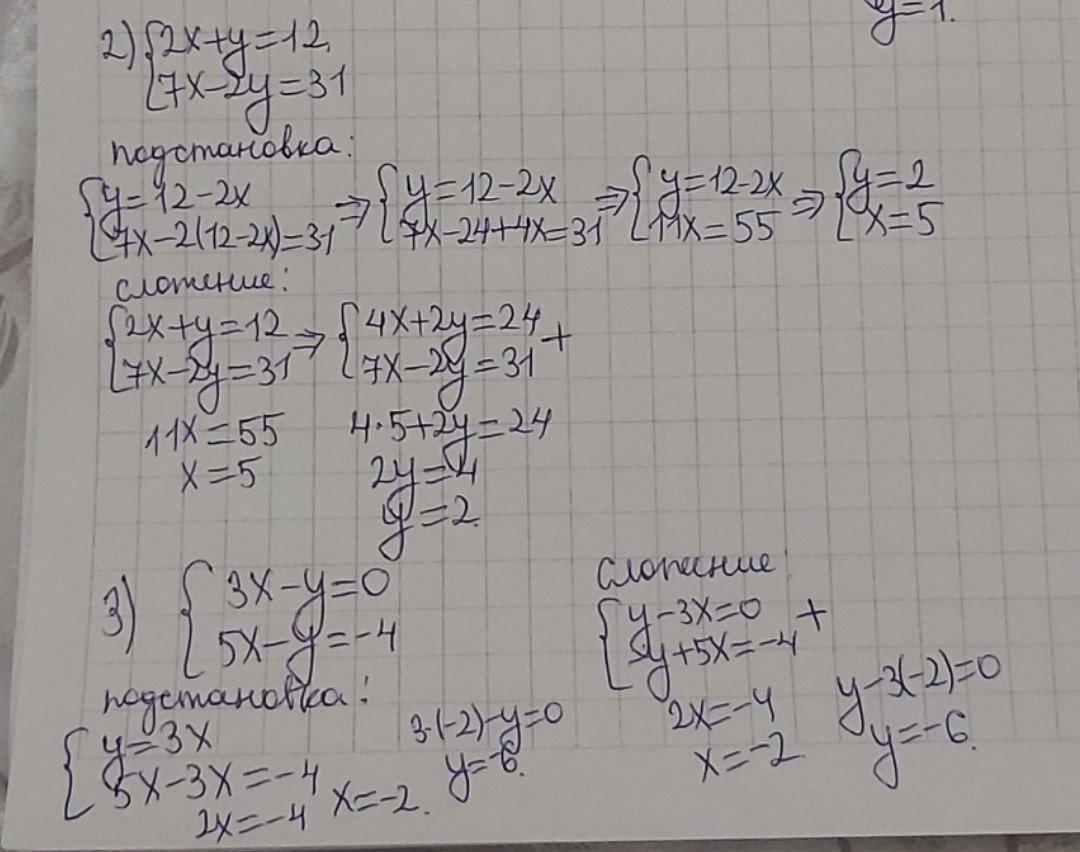 y=1.
2) {2x+y=12,
7x-2y=31
подстановка:
{y=12-2x ⇒ {y=12-2x ⇒ {y=12-2x ⇒ {y=2
7x-2(12-2x)=31 7x-24+4x=31 11x=55 x=5
сложение:
{2x+y=12 ⇒ {4x+2y=24 +
7x-2y=31 7x-2y=31
11x=55 4·5+2y=24
x=5 2y=4
y=2.
3) {3x-y=0
5x-y=-4
подстановка:
{y=3x
5x-3x=-4
2x=-4 x=-2.
3·(-2)-y=0
y=-6.
сложение
{y-3x=0 +
y+5x=-4
2x=-4
x=-2
y-3(-2)=0
y=-6.